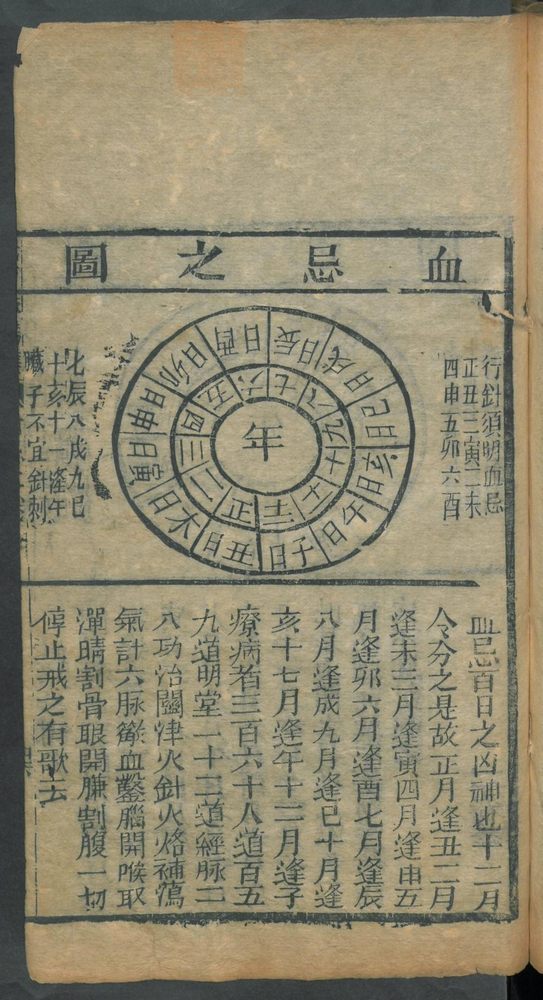 血忌之圖
行針須明血忌
正丑三寅二未
四申五卯六酉
年
正二三四五六七八九十十一十二
丑日未日寅日申日卯日酉日辰日戌日巳日亥日午日子日
七辰八戌九巳
十亥十一逢午
臘子不宜針刺
血忌百日之凶神也十二月
令分之是故正月逢丑二月
逢未三月逢寅四月逢申五
月逢卯六月逢酉七月逢辰
八月逢戌九月逢巳十月逢
亥十七月逢午十二月逢子
療病者三百六十人道百五
九道明堂一十二道經脉二
八功治關津火針火烙補瀉
氣計六脉徹血鑿腦開喉取
渾睛割骨眼開賺割腹一切
停止戒之有歌云